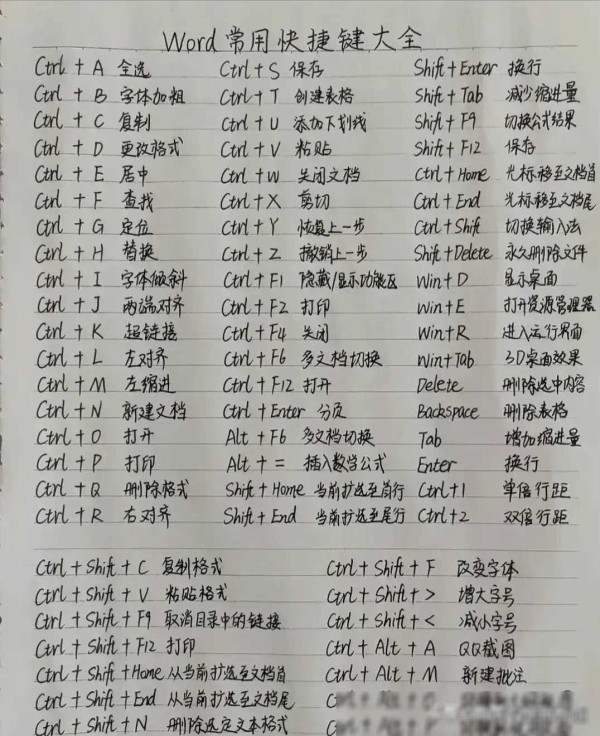 Word常用快捷键大全
Ctrl + A 全选 Ctrl + S 保存 Shift + Enter 换行
Ctrl + B 字体加粗 Ctrl + T 创建表格 Shift + Tab 减少缩进量
Ctrl + C 复制 Ctrl + U 添加下划线 Shift + F9 切换公式结果
Ctrl + D 更改格式 Ctrl + V 粘贴 Shift + F12 保存
Ctrl + E 居中 Ctrl + W 关闭文档 Ctrl + Home 光标移至文档首
Ctrl + F 查找 Ctrl + X 剪切 Ctrl + End 光标移至文档尾
Ctrl + G 定位 Ctrl + Y 恢复上一步 Ctrl + Shift 切换输入法
Ctrl + H 替换 Ctrl + Z 撤销上一步 Shift + Delete 永久删除文件
Ctrl + I 字体倾斜 Ctrl + F1 隐藏/显示功能区 Win + D 显示桌面
Ctrl + J 两端对齐 Ctrl + F2 打印 Win + E 打开资源管理器
Ctrl + K 超链接 Ctrl + F4 关闭 Win + R 进入运行界面
Ctrl + L 左对齐 Ctrl + F6 多文档切换 Win + Tab 3D桌面效果
Ctrl + M 左缩进 Ctrl + F12 打开 Delete 删除选中内容
Ctrl + N 新建文档 Ctrl + Enter 分页 Backspace 删除表格
Ctrl + O 打开 Alt + F6 多文档切换 Tab 增加缩进量
Ctrl + P 打印 Alt + = 插入数学公式 Enter 换行
Ctrl + Q 删除格式 Shift + Home 当前扩选至首行 Ctrl + 1 单倍行距
Ctrl + R 右对齐 Shift + End 当前扩选至尾行 Ctrl + 2 双倍行距
Ctrl + Shift + C 复制格式 Ctrl + Shift + F 改变字体
Ctrl + Shift + V 粘贴格式 Ctrl + Shift + > 增大字号
Ctrl + Shift + F9 取消目录中的链接 Ctrl + Shift + < 减小字号
Ctrl + Shift + F12 打印 Ctrl + Alt + A QQ截图
Ctrl + Shift + Home 从当前扩选至文档首 Ctrl + Alt + M 新建批注
Ctrl + Shift + End 从当前扩选至文档尾
Ctrl + Shift + N 删除选定文本格式